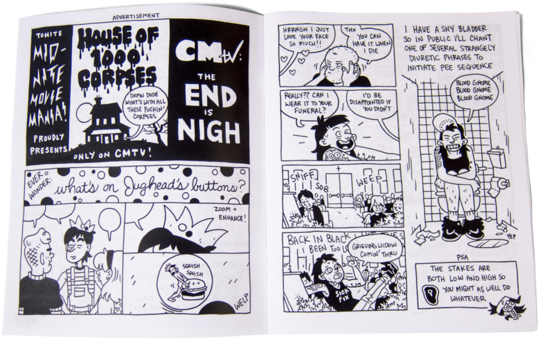 ADVERTISEMENT
TONITE
MID-
NITE
MOVIE
MANIA!
PROUDLY
PRESENTS
HOUSE OF
1000
CORPSES
DAMN DUDE
WHAT'S WITH ALL
THESE FUCKIN'
CORPSES
ONLY ON CMTV!
CMTV:
THE
END
IS
NIGH
EVER
WONDER
what's on Jughead's buttons?
ZOOM +
ENHANCE!
SQUISH
SQUISH
HELP
HRRNGH I JUST
LOVE YOUR FACE
SO MUCH!!
THX
YOU CAN
HAVE IT WHEN
I DIE
REALLY?? CAN I
WEAR IT TO YOUR
FUNERAL?
I'D BE
DISAPPOINTED IF
YOU DIDN'T
SNIFF
SOB
WEEP
BACK IN BLACK
BEEN TOO
GRIEVING WIDOW
COMIN' THRU
SICK
FIX
I HAVE A SHY BLADDER
SO IN PUBLIC I'LL CHANT
ONE OF SEVERAL STRANGELY
DIURETIC PHRASES TO
INITIATE PEE SEQUENCE
BLOOD GNOME
BLOOD GNOME
BLOOD GNOME
PSA
THE STAKES ARE
BOTH LOW AND HIGH SO
YOU MIGHT AS WELL DO
WHATEVER